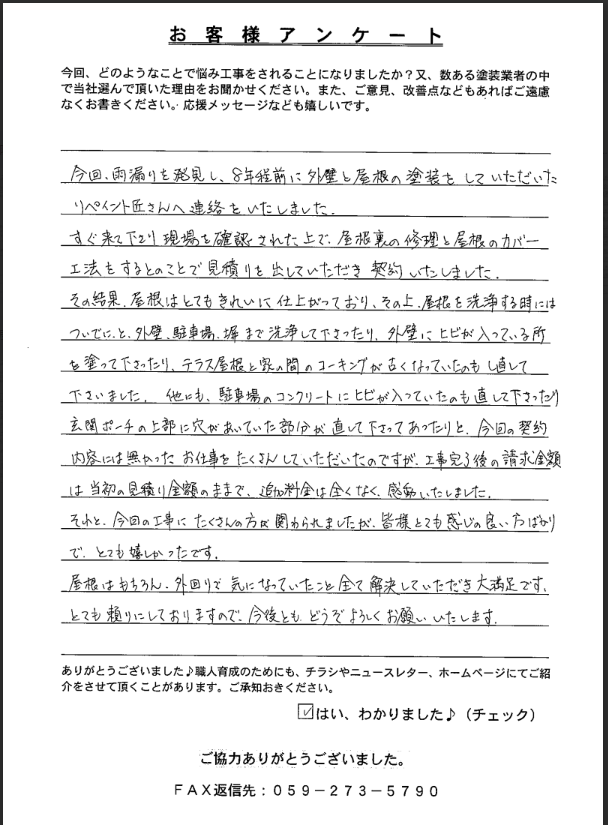 お客様アンケート
今回、どのようなことで悩み工事をされることになりましたか？又、数ある塗装業者の中
で当社選んで頂いた理由をお聞かせください。また、ご意見、改善点などもあればご遠慮
なくお書きください。応援メッセージなども嬉しいです。
今回、雨漏りを発見し、8年程前に外壁と屋根の塗装をしていただいた
リペイント匠さんへ連絡をいたしました。
すぐ来て下さり現場を確認された上で、屋根裏の修理と屋根のカバー
工法をするとのことで見積りを出していただき契約いたしました。
その結果、屋根はとてもきれいに仕上がっており、その上、屋根を洗浄する時には
ついでにと、外壁、駐車場、塀まで洗浄して下さったり、外壁にヒビが入っている所
を塗って下さったり、テラス屋根と家の間のコーキングが古くなっていたのも直して
下さいました。他にも、駐車場のコンクリートにヒビが入っていたのも直して下さったり
玄関ポーチの上部に穴があいていた部分が直して下さってあったりと、今回の契約
内容には無かったお仕事をたくさんしていただいたのですが、工事完了後の請求金額
は当初の見積り金額のままで、追加料金は全くなく、感動いたしました。
それと、今回の工事にたくさんの方が関わられましたが、皆様とても感じの良い方ばかり
で、とても嬉しかったです。
屋根はもちろん、外回りで気になっていたこと全て解決していただき大満足です。
とても頼りにしておりますので、今後ともどうぞよろしくお願いいたします。
ありがとうございました♪職人育成のためにも、チラシやニュースレター、ホームページにてご紹
介をさせて頂くことがあります。ご承知おきください。
☑はい、わかりました♪（チェック）
ご協力ありがとうございました。
ＦＡＸ返信先：０５９－２７３－５７９０